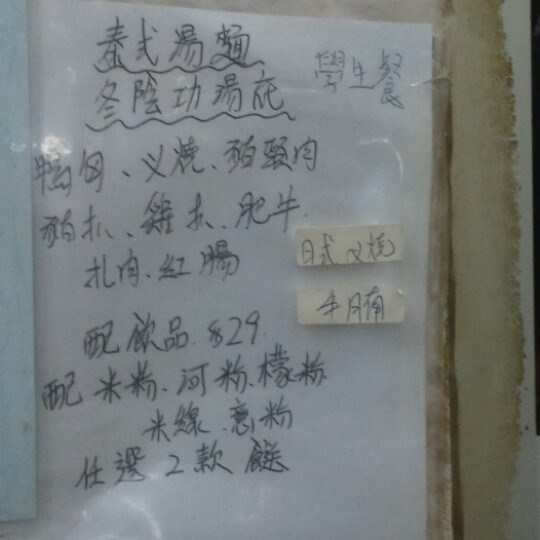 泰式湯麵
學生餐
冬陰功湯底
鴨肉、义燒、豬頸肉
豬扒、雞扒、肥牛
扎肉、紅腸
日式义燒
牛腩
配飲品 $29
配米粉、河粉、檬粉
米線、意粉
任選2款餸